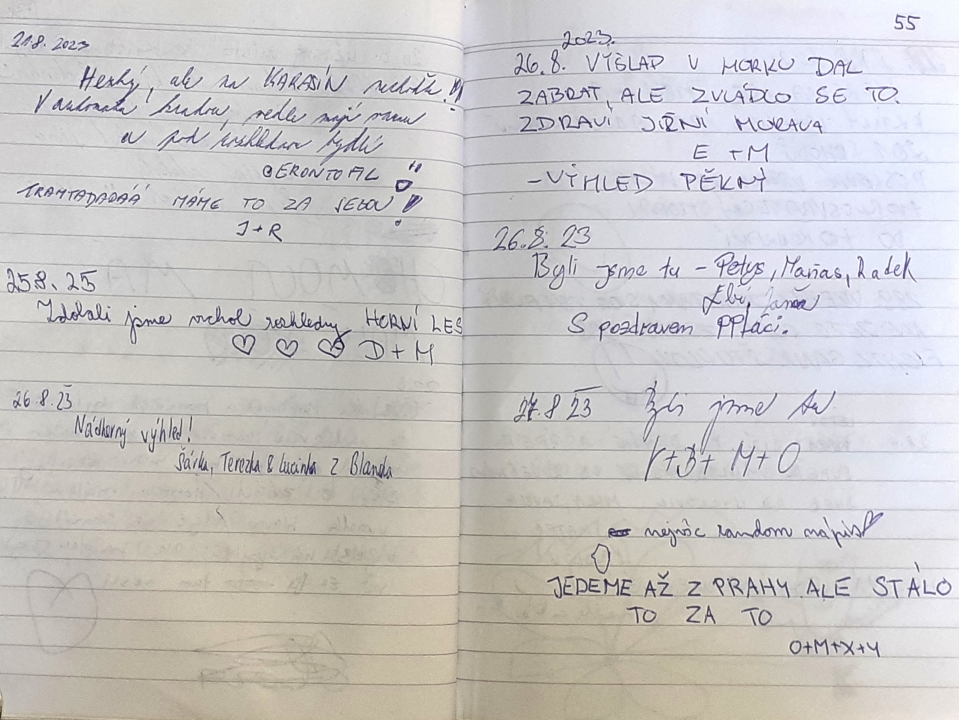 21.8. 2023
Hezký, ale na KARASÍN nemá!!
V automatu kradou, vedle mají
a pod rozhlednou bydlí
GERONTOFIL
TRAMTADADÁÁ MÁME TO ZA SEBOU!
J+R
25.8. 25
Zdolali jsme vrchol rozhledny HORNÍ LES
D+M
26.8.23
Nádherný výhled!
Šárka, Terezka & Lucinka z Blanska
55
2023.
26.8. VÝŠLAP V HORKU DAL
ZABRAT, ALE ZVLÁDLO SE TO.
ZDRAVÍ JIŽNÍ MORAVA
E + M
- VÝHLED PĚKNÝ
26.8. 23
Byli jsme tu - Petys, Radek
S pozdravem
27.8 23 Byli jsme tu
V+B+M+O
nejvíc random nápis
JEDEME AŽ Z PRAHY ALE STÁLO
TO ZA TO
O+M+X+Y